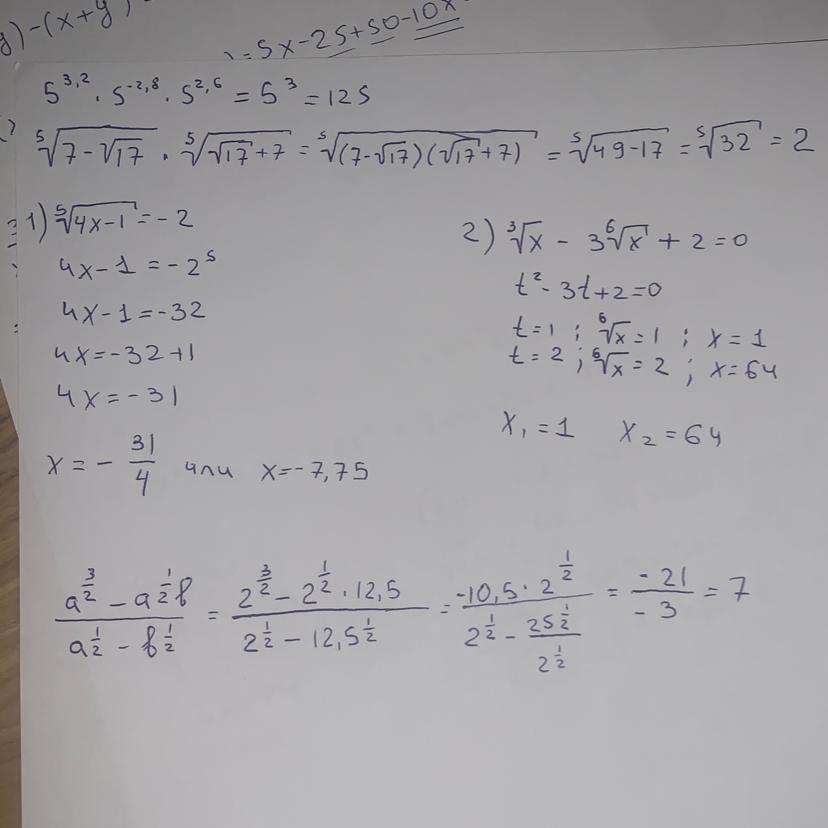 ) - (x + y)
) = 5x - 25 + 50 - 10x
5^{3,2} · 5^{-2,8} · 5^{2,6} = 5^3 = 125
⁵√(7 - √17) · ⁵√(√17 + 7) = ⁵√((7 - √17)(√17 + 7)) = ⁵√(49 - 17) = ⁵√32 = 2
1) ⁵√(4x - 1) = -2
4x - 1 = -2^5
4x - 1 = -32
4x = -32 + 1
4x = -31
x = - 31/4 или x = -7,75
2) ³√x - 3 ⁶√x + 2 = 0
t² - 3t + 2 = 0
t = 1 ; ⁶√x = 1 ; x = 1
t = 2 ; ⁶√x = 2 ; x = 64
x₁ = 1 x₂ = 64
(a^{3/2} - a^{1/2}b)/(a^{1/2} - b^{1/2}) = (2^{3/2} - 2^{1/2} · 12,5)/(2^{1/2} - 12,5^{1/2}) = (-10,5 · 2^{1/2})/(2^{1/2} - 25^{1/2}/2^{1/2}) = -21/-3 = 7